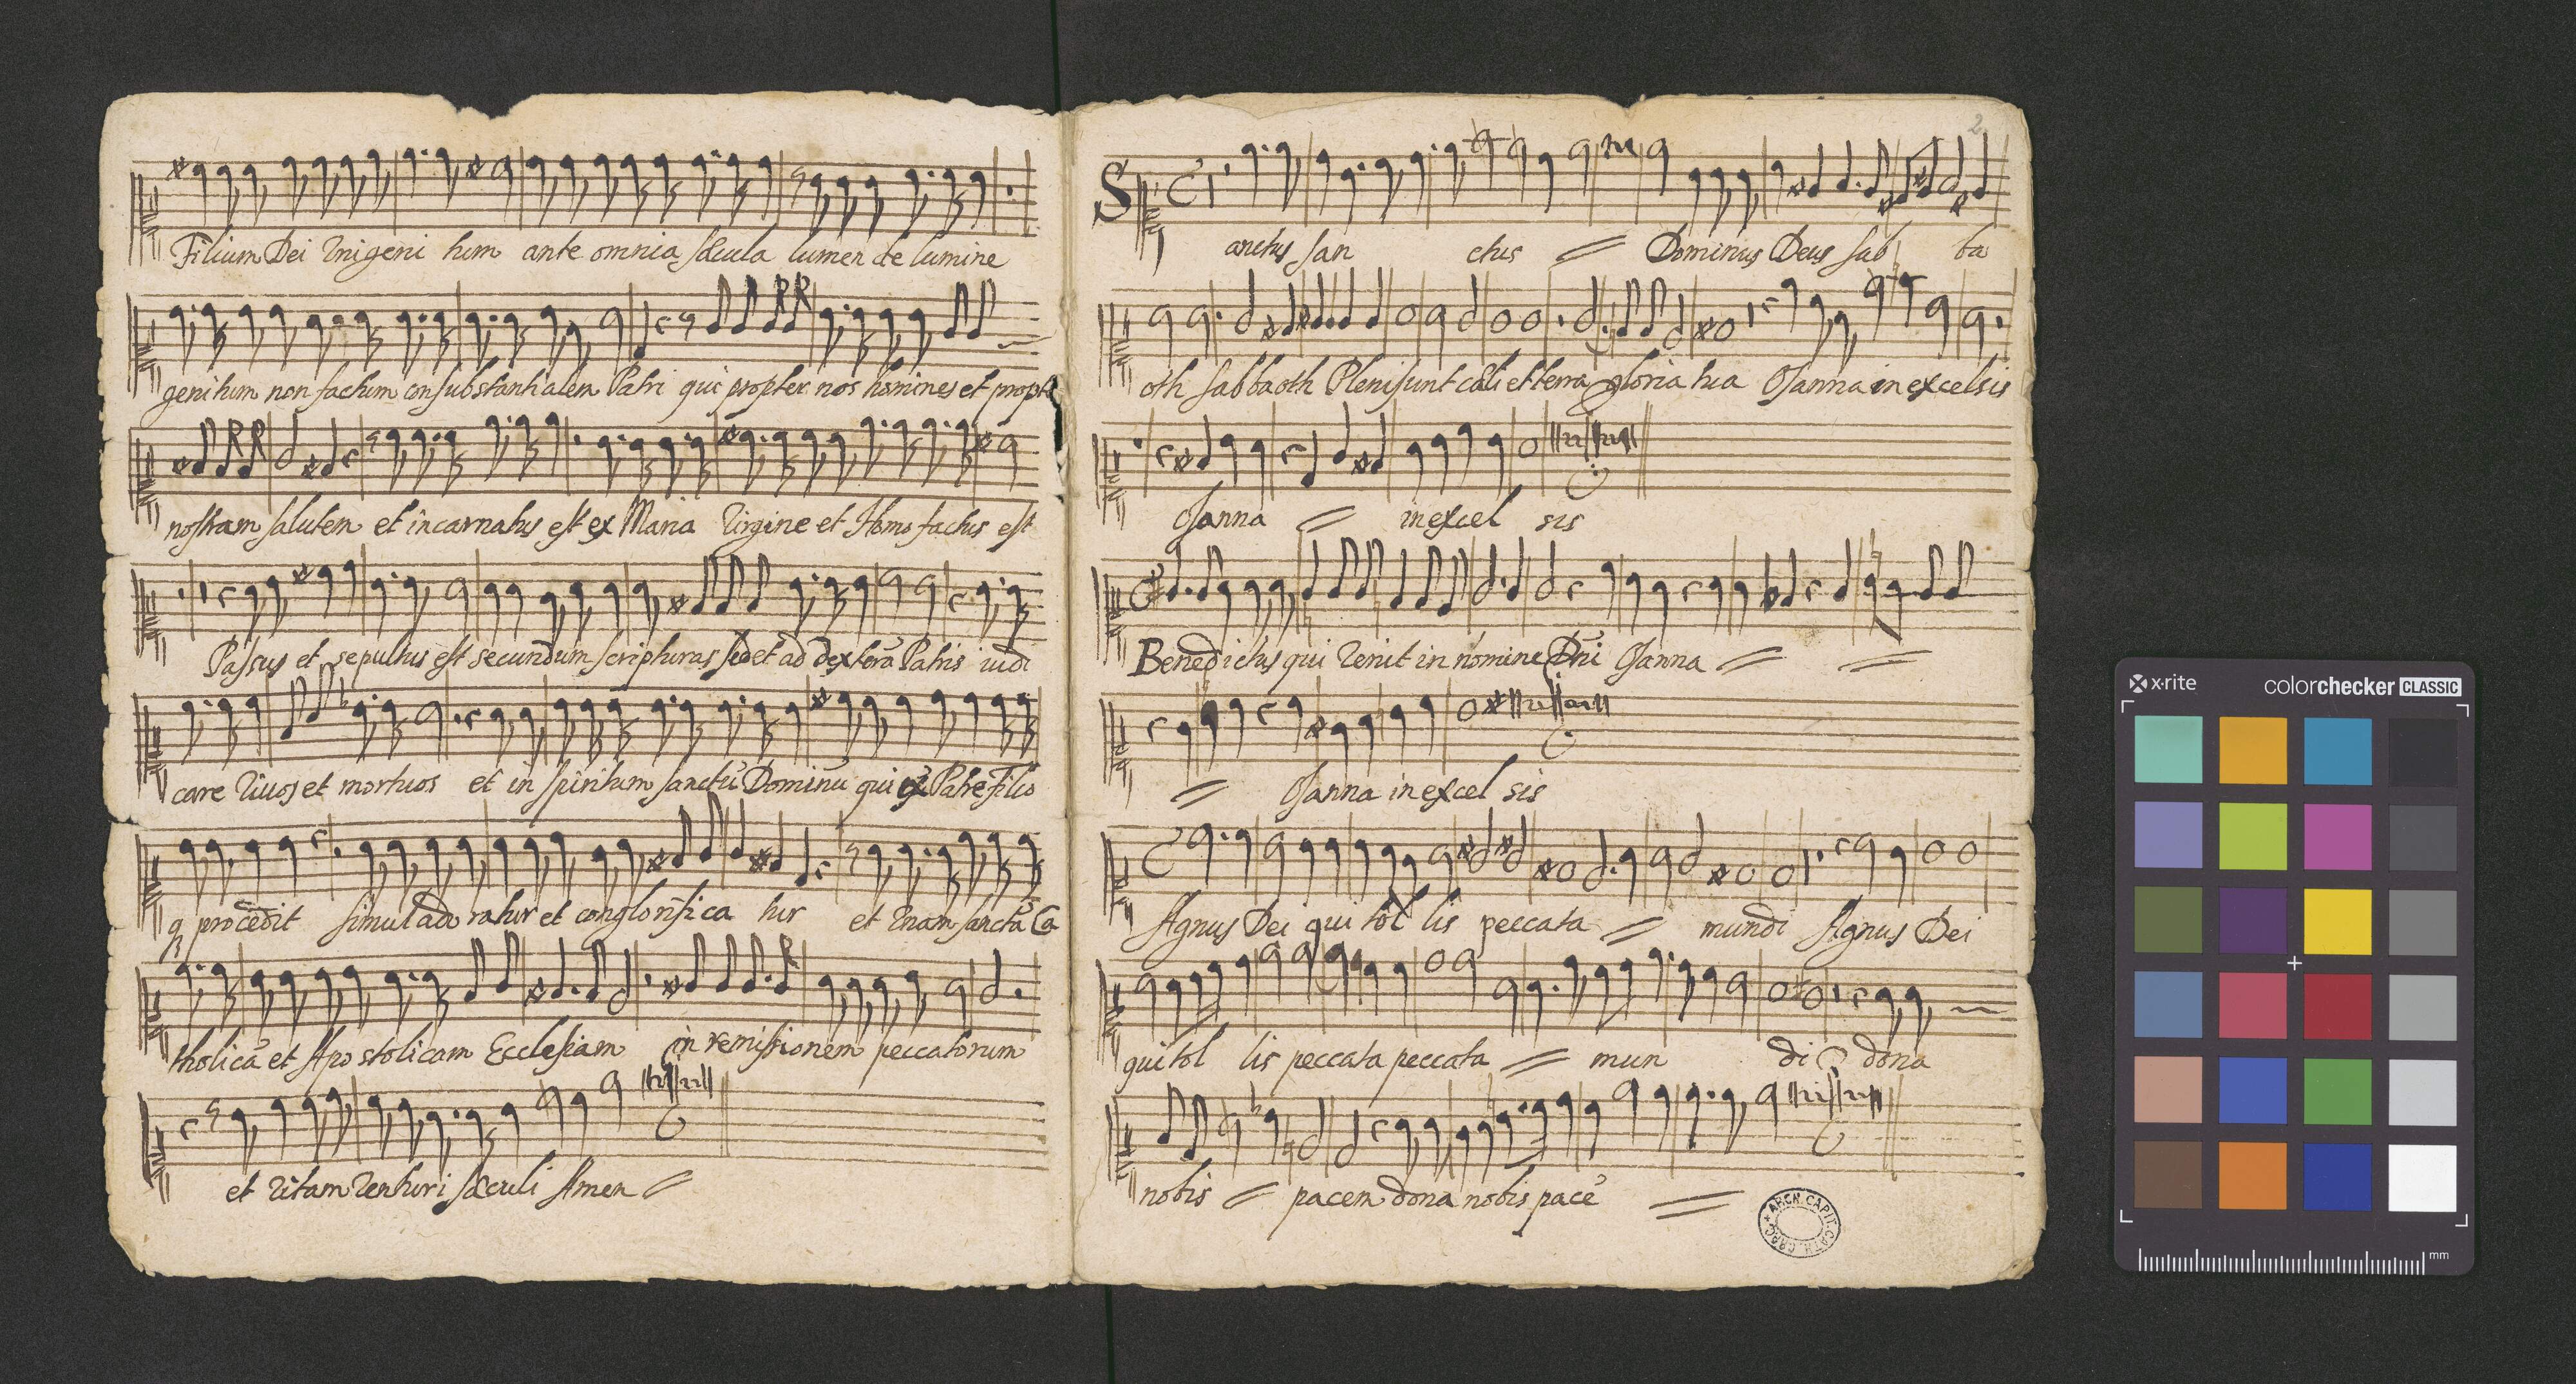 Filium Dei Vnigeni tum ante omnia sæcula lumen de lumine
genitum non factum consubstantialem Patri qui propter nos homines et propte
nostram salutem et incarnatus est ex Maria Virgine et Homo factus est
Passus et sepultus est secundum scripturas sedet ad dexterã Patris iudi
care viuos et mortuos et in spiritum sanctũ Dominũ qui ex Patre Filio
q procedit simul ado ratur et conglorifica tur et vnam sanctã Ca
tholicã et Apostolicam Ecclesiam in remissionem peccatorum
et vitam venturi sæculi Amen
2
S
anctus san ctus Dominus Deus sab ba
oth sabbaoth Pleni sunt cæli et terra gloria tua Osanna in excelsis
Osanna in excel sis
Benedictus qui venit in nomine Dñi Osanna
Osanna in excel sis
Agnus Dei qui tol lis peccata mundi Agnus Dei
qui tol lis peccata peccata mun di dona
nobis pacem dona nobis pacẽ
ARCH. CAPIT. CATH. CRAC.
x·rite colorchecker CLASSIC
mm